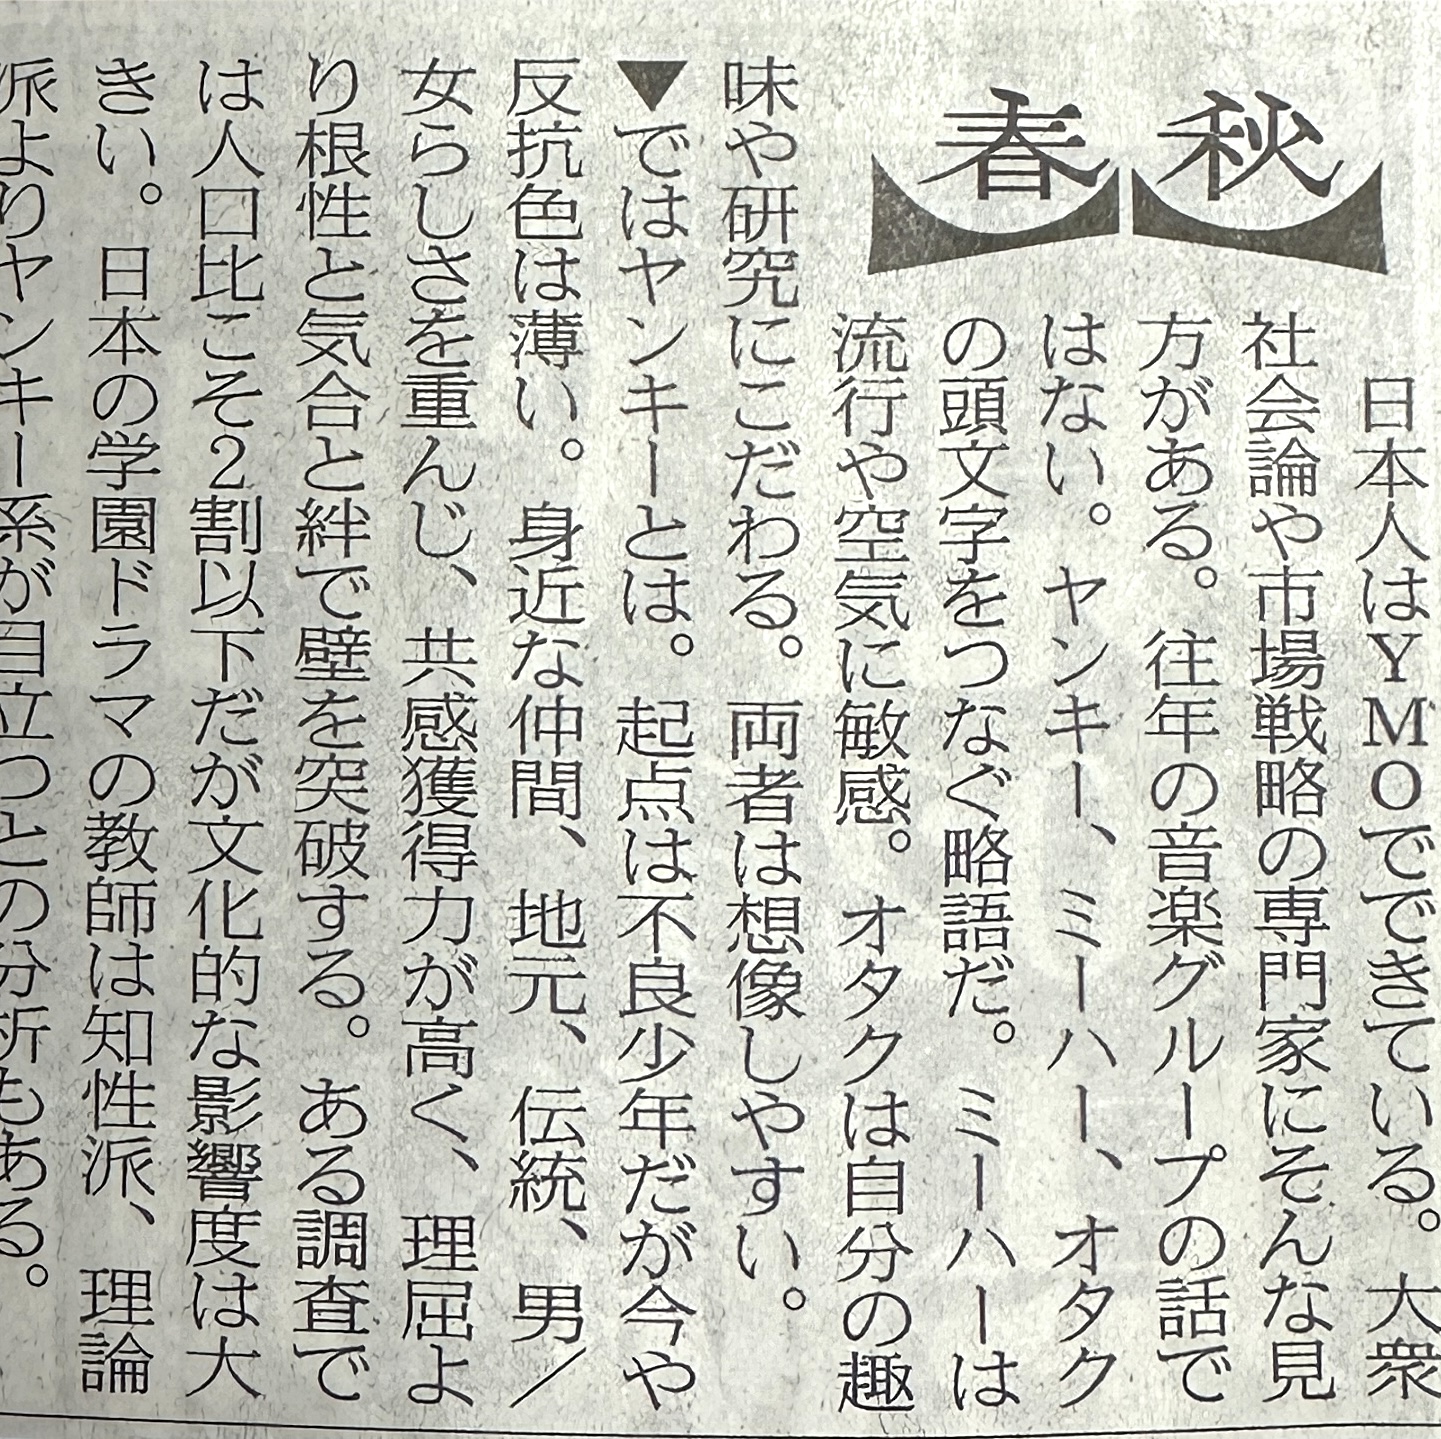 春秋
日本人はＹＭＯでできている。大衆
社会論や市場戦略の専門家にそんな見
方がある。往年の音楽グループの話で
はない。ヤンキー、ミーハー、オタク
の頭文字をつなぐ略語だ。ミーハーは
流行や空気に敏感。オタクは自分の趣
味や研究にこだわる。両者は想像しやすい。
▼ではヤンキーとは。起点は不良少年だが今や
反抗色は薄い。身近な仲間、地元、伝統、男／
女らしさを重んじ、共感獲得力が高く、理屈よ
り根性と気合と絆で壁を突破する。ある調査で
は人口比こそ２割以下だが文化的な影響度は大
きい。日本の学園ドラマの教師は知性派、理論
派よりヤンキー系が目立つとの分析もある。